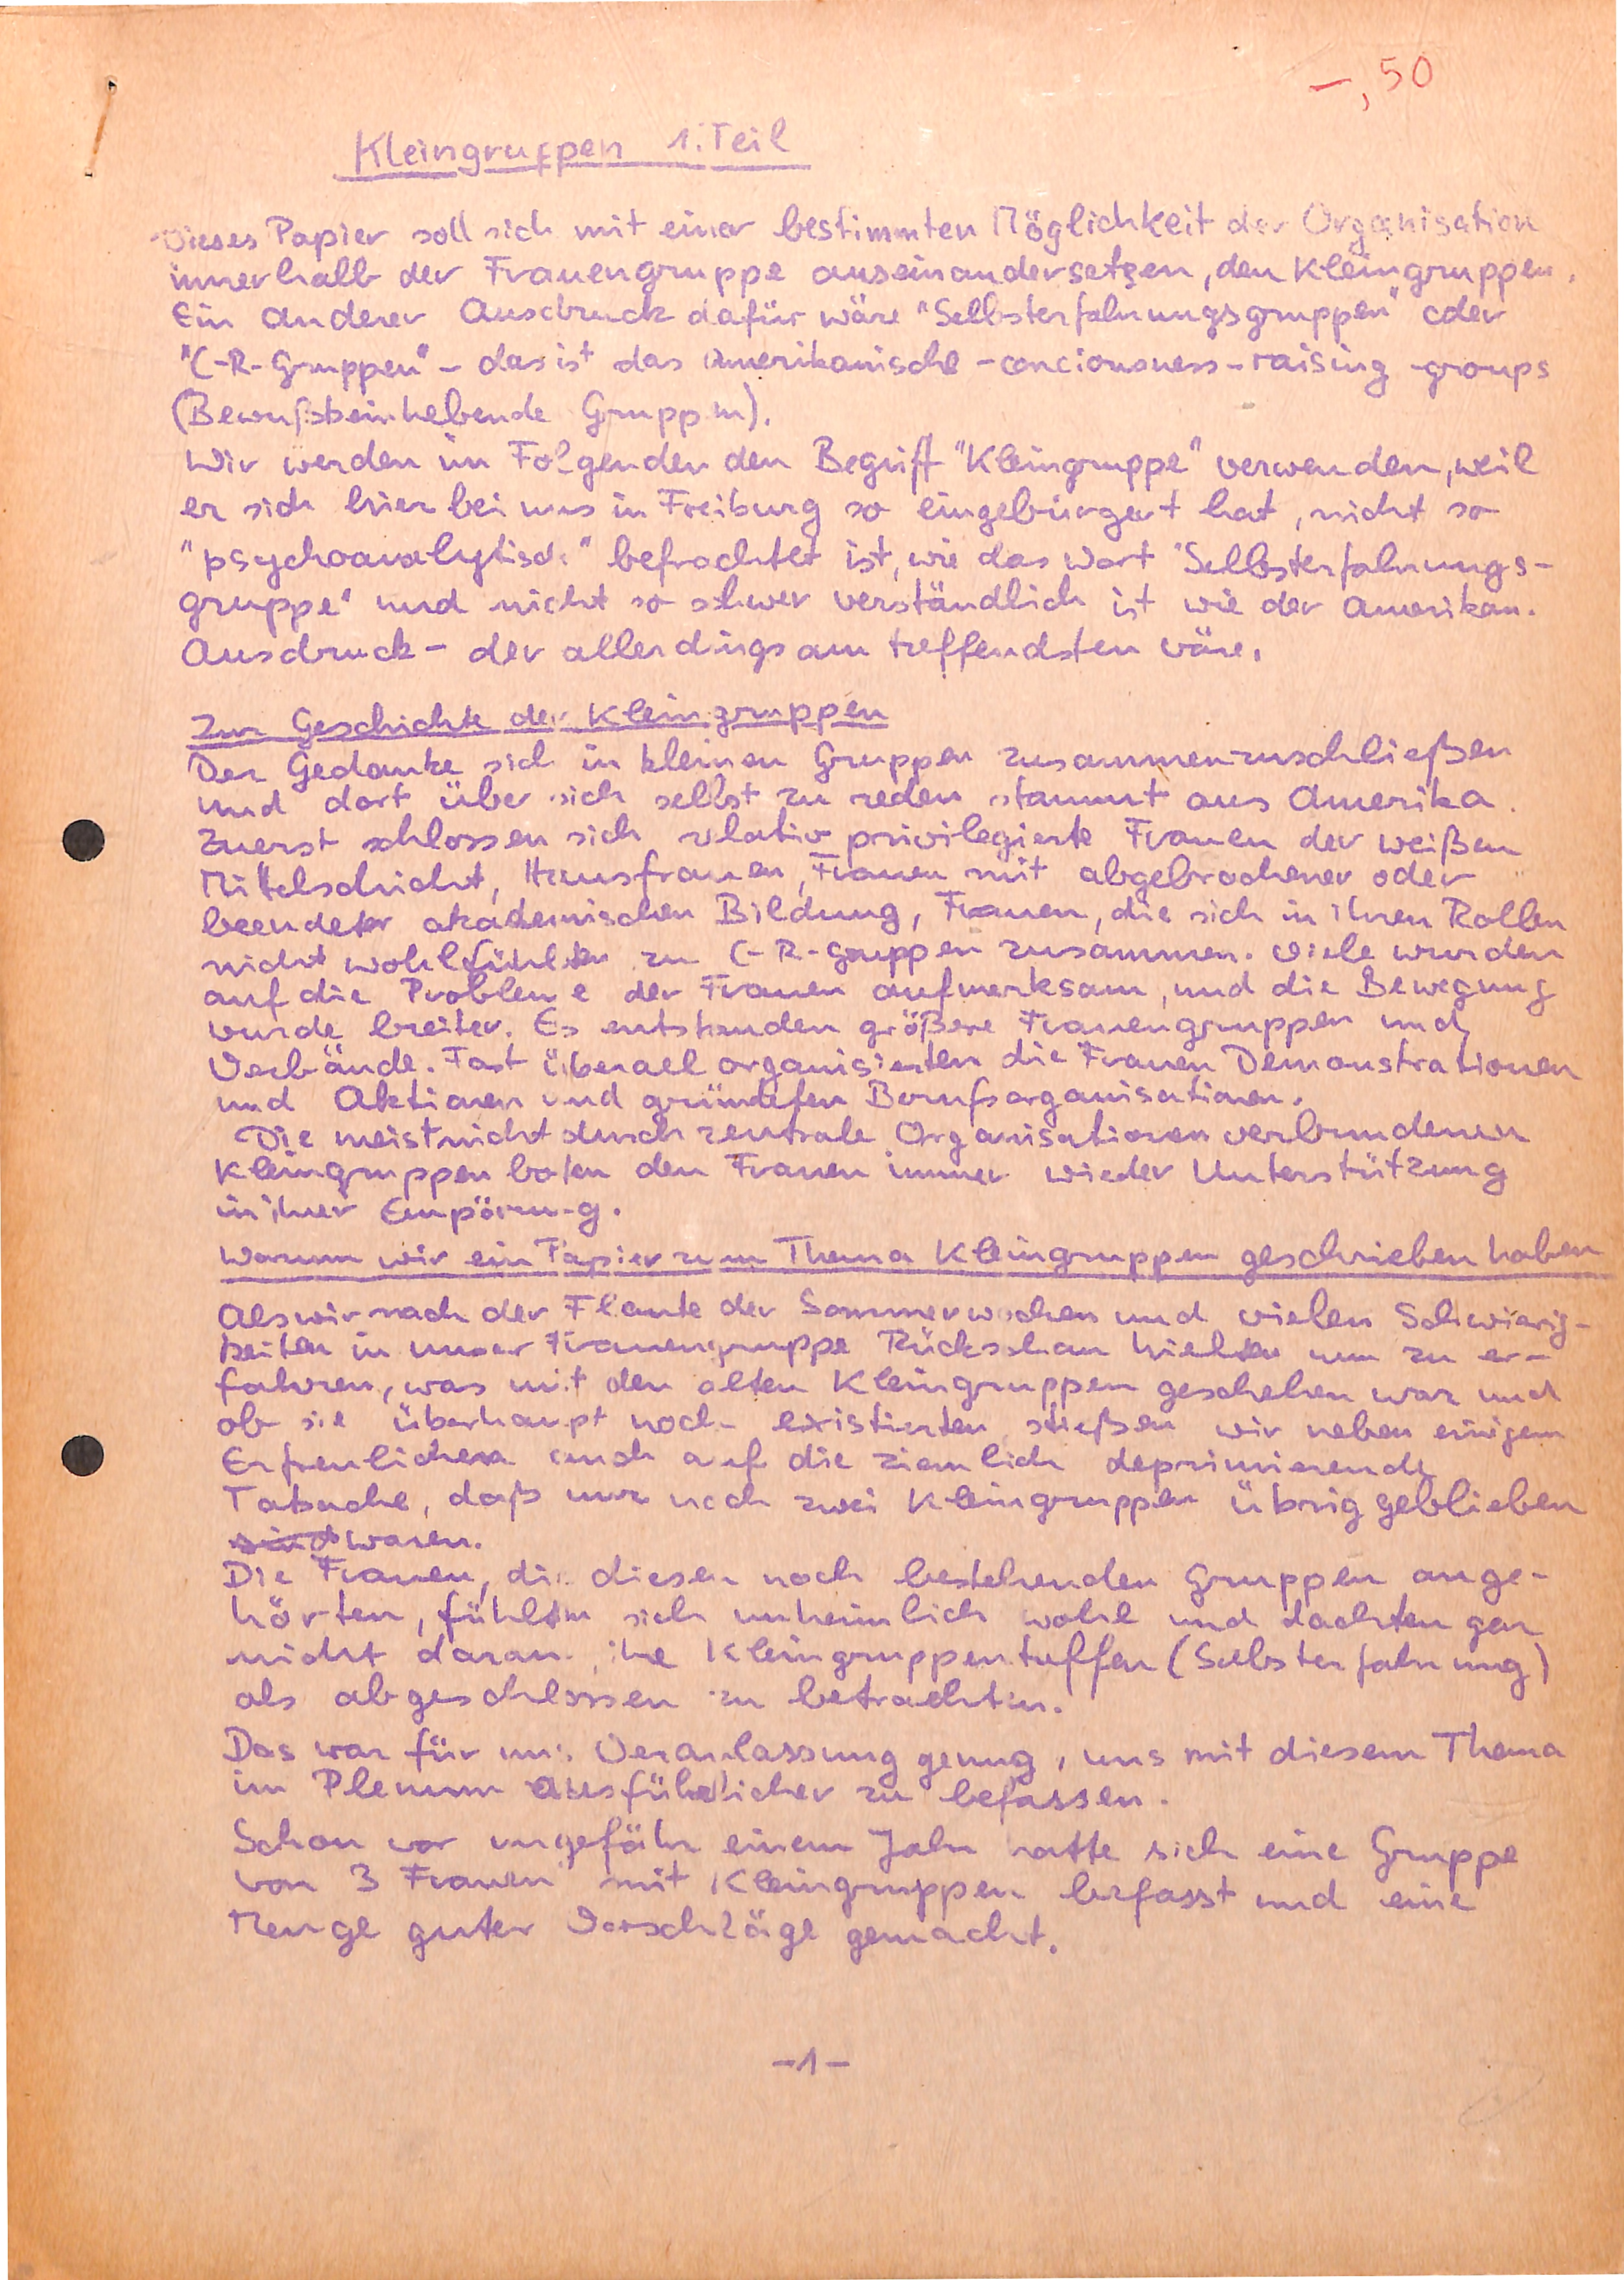 -,50
Kleingruppen 1. Teil
Dieses Papier soll sich mit einer bestimmten Möglichkeit der Organisation
innerhalb der Frauengruppe auseinandersetzen, den Kleingruppen.
Ein anderer Ausdruck dafür wäre "Selbsterfahrungsgruppen" oder
"C-R-Gruppen" - das ist das amerikanische - conciousness-raising-groups
(Bewußtseinhebende Gruppen).
Wir werden im Folgenden den Begriff "Kleingruppe" verwenden, weil
er sich hier bei uns in Freiburg so eingebürgert hat, nicht so
"psychoanalytisch" befrachtet ist, wie das Wort "Selbsterfahrungs-
gruppe" und nicht so schwer verständlich ist wie der amerikan.
Ausdruck - der allerdings am treffendsten wäre.
Zur Geschichte der Kleingruppen
Der Gedanke sich in kleinen Gruppen zusammenzuschließen
und dort über sich selbst zu reden stammt aus Amerika.
Zuerst schlossen sich relativ privilegierte Frauen der weißen
Mittelschicht, Hausfrauen, Frauen mit abgebrochener oder
beendeter akademischen Bildung, Frauen, die sich in ihren Rollen
nicht wohlfühlten zu C-R-Gruppen zusammen. Viele wurden
auf die Probleme der Frauen aufmerksam, und die Bewegung
wurde breiter. Es entstanden größere Frauengruppen und
Verbände. Fast überall organisierten die Frauen Demonstrationen
und Aktionen und gründeten Berufsorganisationen.
Die meist nicht durch zentrale Organisationen verbundenen
Kleingruppen boten den Frauen immer wieder Unterstützung
in ihrer Empörung.
Warum wir ein Papier zum Thema Kleingruppen geschrieben haben
Als wir nach der Flaute der Sommerwochen und vielen Schwierig-
keiten in unser Frauengruppe Rückschau hielten um zu er-
fahren, was mit den alten Kleingruppen geschehen war und
ob sie überhaupt noch existierten stießen wir neben einigem
Erfreulichen auch auf die ziemlich deprimierende
Tatsache, daß nur noch zwei Kleingruppen übrig geblieben
sind waren.
Die Frauen, die diesen noch bestehenden Gruppen ange-
hörten, fühlten sich unheimlich wohl und dachten gar
nicht daran, ihre Kleingruppentreffen (Selbsterfahrung)
als abgeschlossen zu betrachten.
Das war für uns Veranlassung genug, uns mit diesem Thema
im Plenum ausführlicher zu befassen.
Schon vor ungefähr einem Jahr hatte sich eine Gruppe
von 3 Frauen mit Kleingruppen befasst und eine
Menge guter Vorschläge gemacht.
-1-